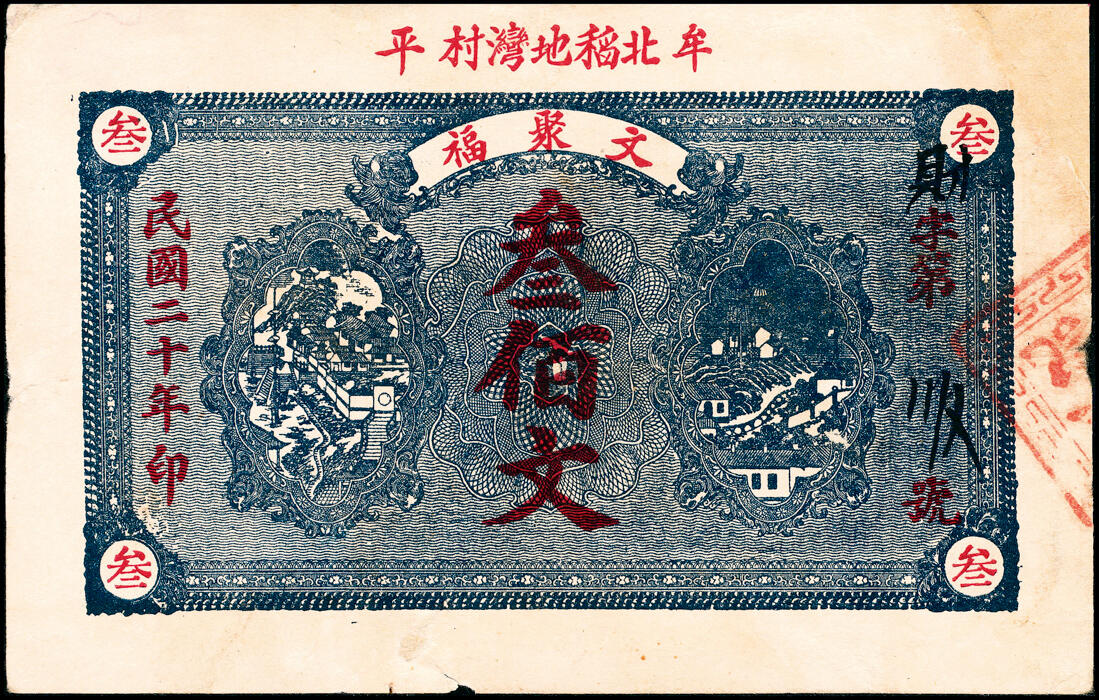 牟北稻地灣村平
文聚福
叁
叁
財字第
號
叁佰文
民國二十年印
叁
叁